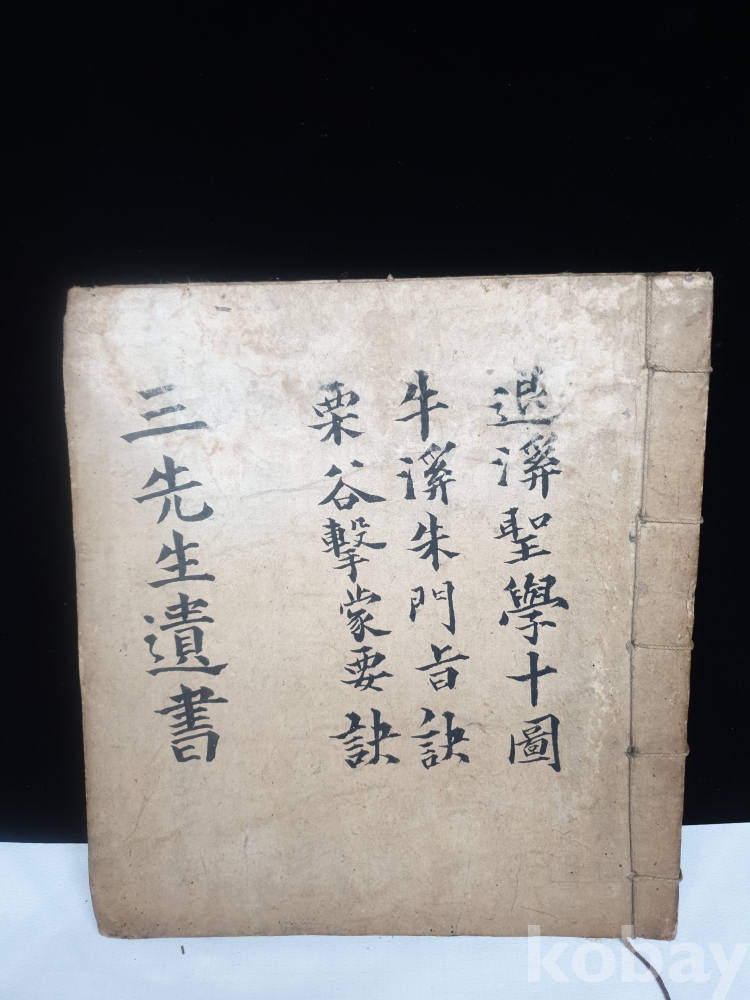 退溪聖學十圖
牛溪朱門旨訣
栗谷擊蒙要訣
三先生遺書
kobay